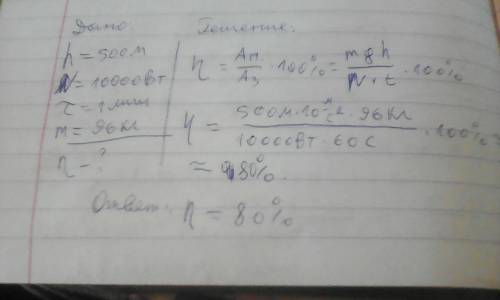 Дано: Решение:
h = 500м
N = 10000Вт
τ = 1 мин
m = 96кг
η - ?
η = Aп/Aз · 100% = mgh/N·t · 100%
η = 500м·10 м/с²·96кг/10000Вт·60с · 100% =
= 80%.
Ответ: η = 80%